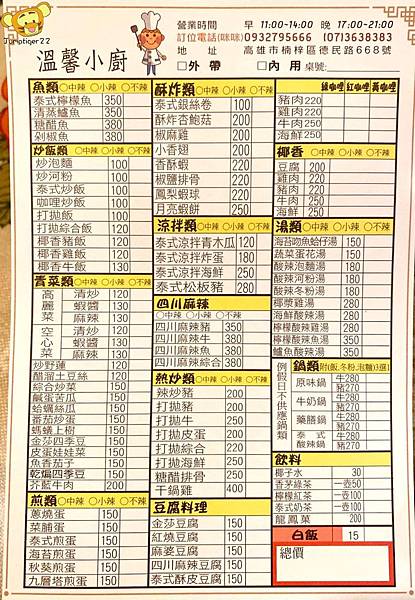 Jumptiger22
溫馨小廚
營業時間 早 11:00-14:00 晚 17:00-21:00
訂位電話(咪咪) 0932795666 (07)3638383
地址 高雄市楠梓區德民路668號
□外帶 □內用 桌號:
魚類 ○中辣 ○小辣 ○不辣
泰式檸檬魚 350
清蒸鱸魚 350
糖醋魚 380
剁椒魚 380
炒飯類 ○中辣 ○小辣 ○不辣
炒泡麵 100
炒河粉 100
泰式炒飯 100
咖哩炒飯 100
打拋飯 100
打拋綜合飯 120
椰香豬飯 120
椰香雞飯 120
椰香牛飯 130
青菜類 ○中辣 ○小辣 ○不辣
高麗菜 清炒 120
蝦醬 130
麻辣 130
空心菜 清炒 120
蝦醬 130
麻辣 130
炒野蓮 150
醋溜土豆絲 120
綜合炒菜 150
鹹蛋苦瓜 150
蛤蠣絲瓜 150
番茄炒蛋 150
螞蟻上樹 150
金莎四季豆 150
皮蛋娃娃菜 150
魚香茄子 150
乾煸四季豆 150
芥藍牛肉 200
煎類 ○中辣 ○小辣 ○不辣
蔥燒煎蛋 150
菜脯蛋 150
泰式煎蛋 150
海苔煎蛋 150
秋葵煎蛋 150
九層塔煎蛋 150
酥炸類 ○中辣 ○小辣 ○不辣
泰式銀絲卷 100
酥炸杏鮑菇 200
椒麻雞 200
小香翅 200
香酥蝦 220
椒鹽排骨 220
鳳梨蝦球 220
月亮蝦餅 250
涼拌類 ○中辣 ○小辣 ○不辣
泰式涼拌青木瓜 120
泰式涼拌炸蛋 180
泰式涼拌海鮮 250
泰式松板豬 280
四川麻辣
○中辣 ○小辣 ○不辣
四川麻辣豬 350
四川麻辣牛 380
四川麻辣魚 380
四川麻辣綜合 380
熱炒類 ○中辣 ○小辣 ○不辣
辣炒豬 200
打拋豬 200
打拋牛 250
打拋皮蛋 200
打拋綜合 220
打拋海鮮 250
糖醋排骨 250
干鍋雞 400
豆腐料理
金莎豆腐 150
紅燒豆腐 150
麻婆豆腐 150
四川麻辣豆腐 150
泰式酥皮豆腐 150
綠咖哩 紅咖哩 黃咖哩
豬肉 220
雞肉 220
牛肉 250
海鮮 250
椰香 ○中辣 ○小辣 ○不辣
豆腐 200
雞肉 220
豬肉 220
牛肉 250
海鮮 250
湯類 ○中辣 ○小辣 ○不辣
海苔吻魚蛤仔湯 150
蔬菜蛋花湯 150
酸辣泡麵湯 180
酸辣河粉湯 180
酸辣冬粉湯 180
椰漿雞湯 280
海鮮酸辣湯 280
檸檬酸辣雞湯 280
檸檬酸辣魚湯 350
鱸魚酸辣湯 350
例假日不供應鍋類
鍋類 附(飯,冬粉,泡麵)3選1
原味鍋 牛280
豬270
牛奶鍋 牛280
豬270
藥膳鍋 牛280
豬270
泰式酸辣鍋 牛280
豬270
飲料
椰子水 30
香茅綠茶 一壺50
檸檬紅茶 一壺100
泰式奶茶 一壺100
龍鳳菜 200
白飯 15
總價